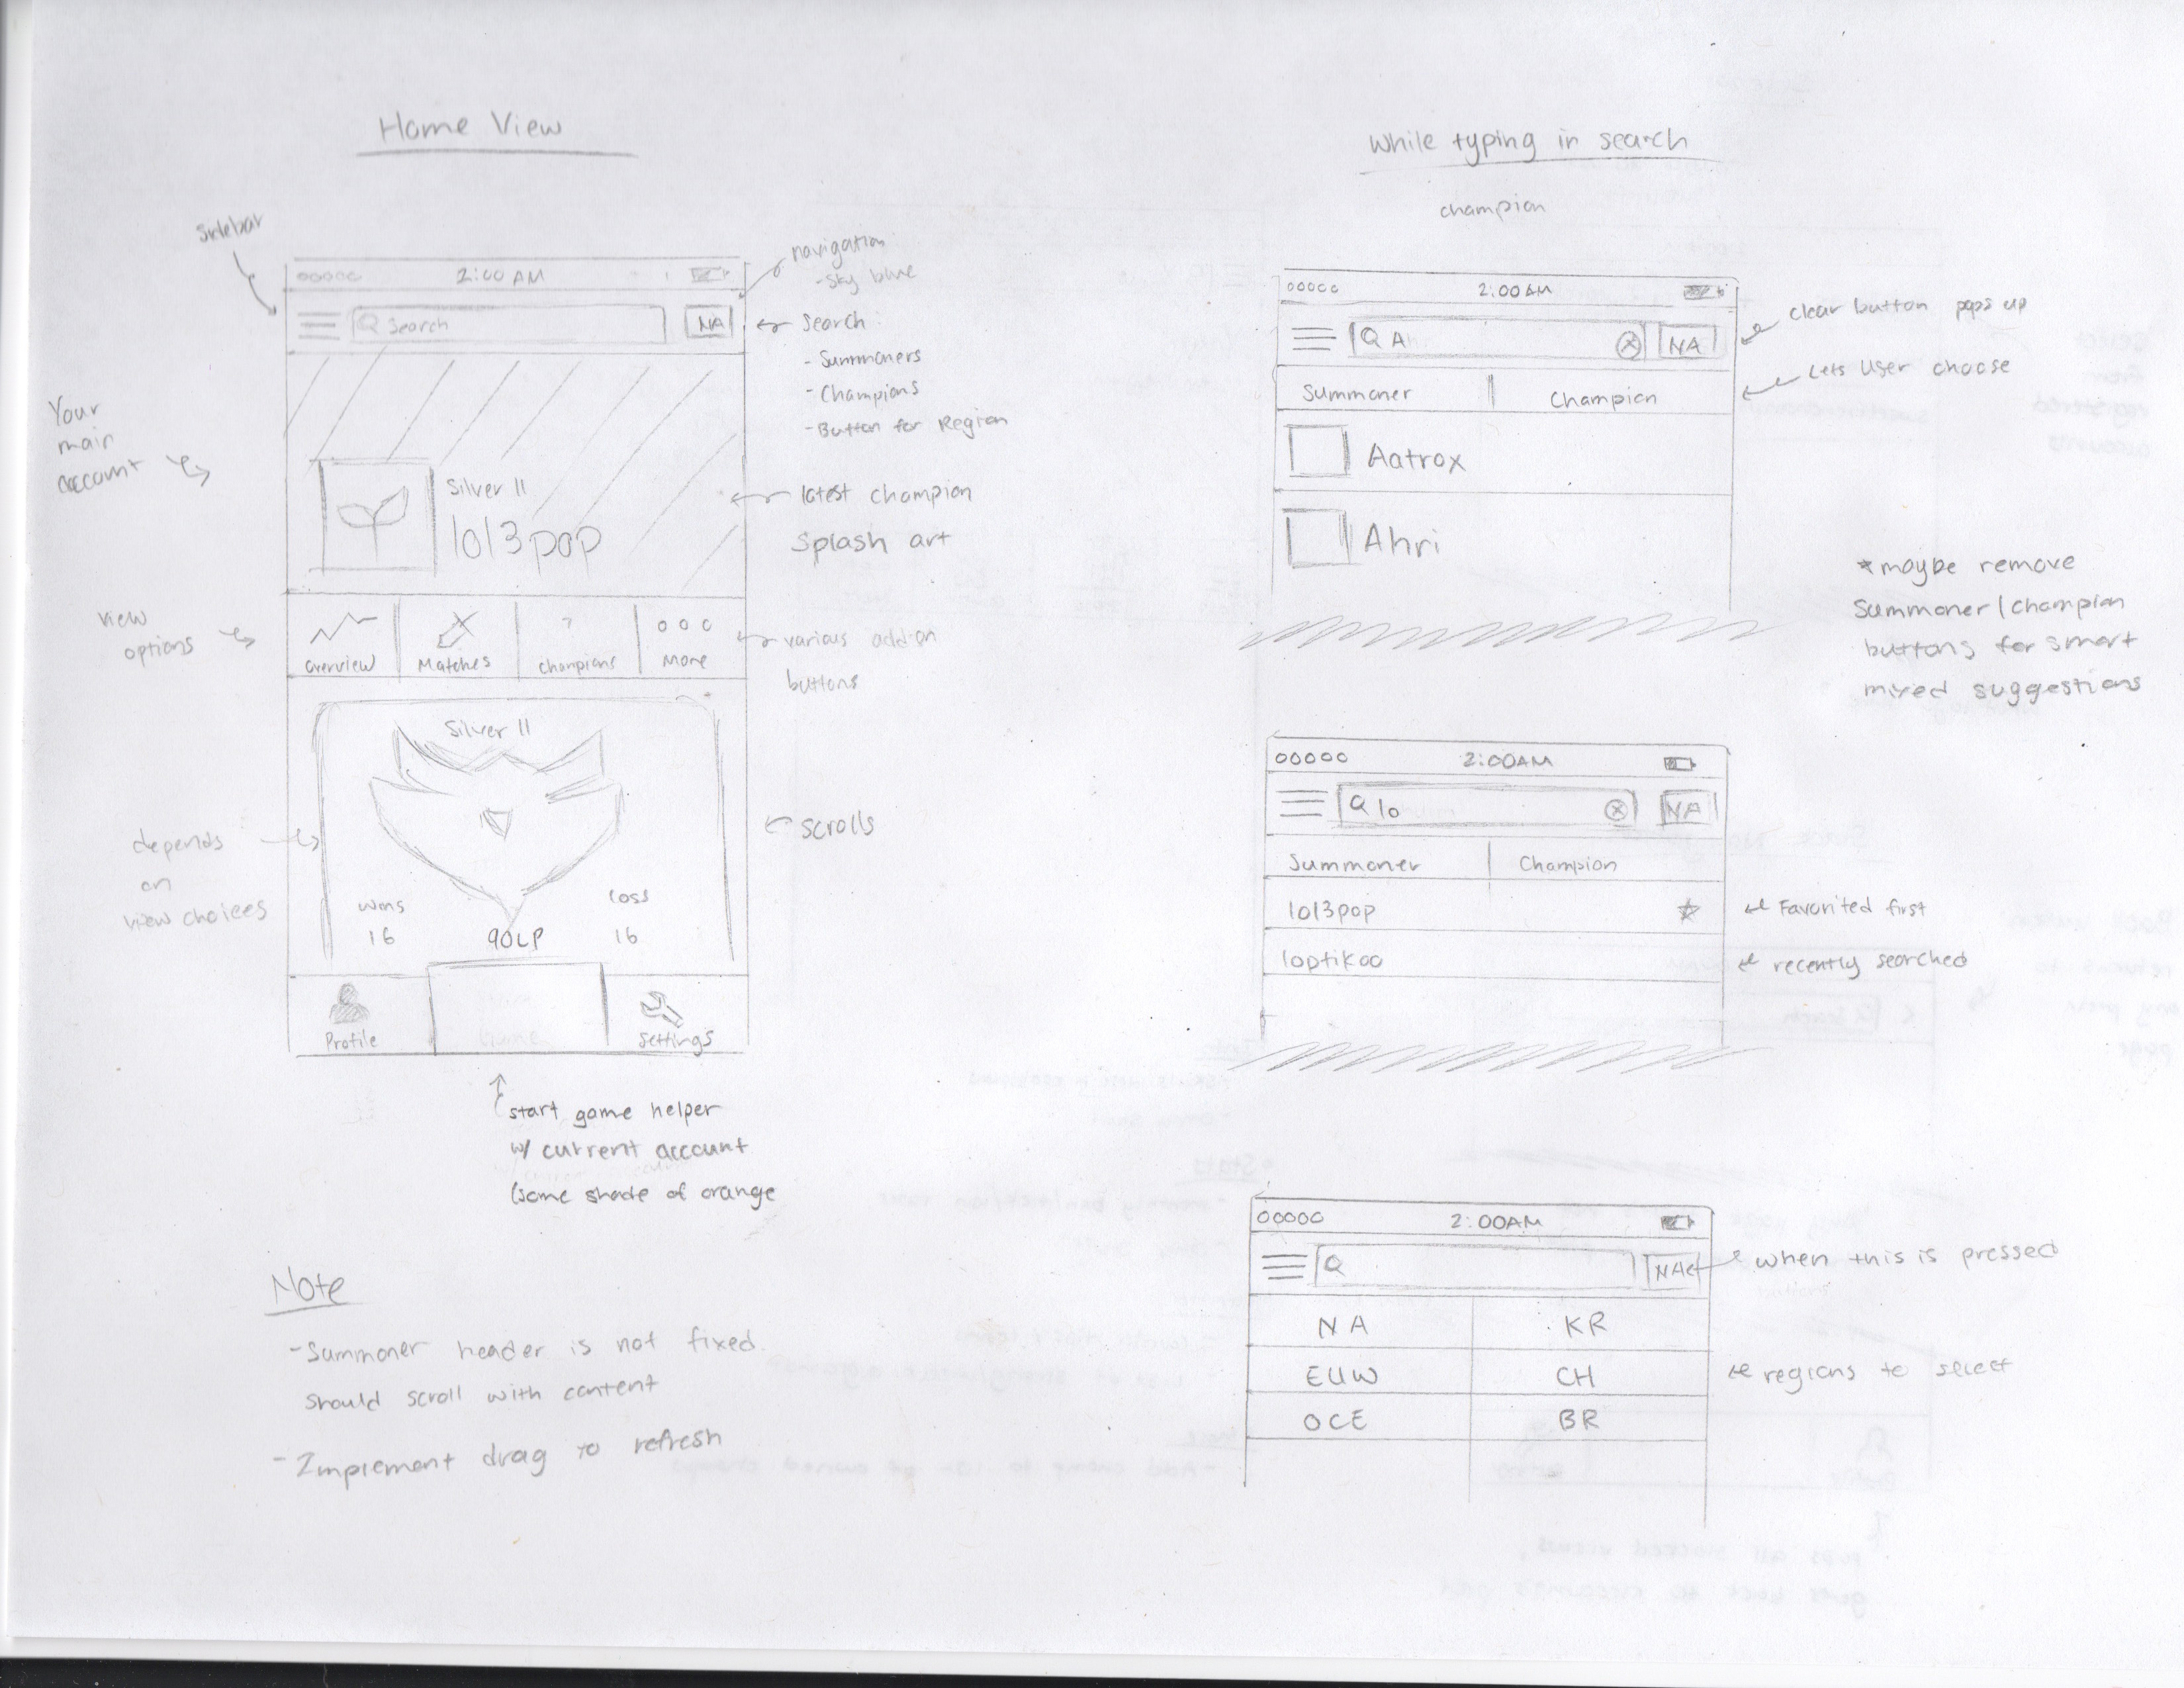 Home View
sidebar
navigation
-sky blue
2:00 AM
Search
NA
search
- Summoners
- Champions
- Button for Region
Your
main
account
Silver II
lol3pop
latest champion
Splash art
view
options
overview
Matches
?
champions
More
various add-on
buttons
Silver II
scrolls
depends
on
view choices
wins
loss
16
90LP
16
Profile
Game
Settings
start game helper
w/ current account
(some shade of orange
Note
- Summoner header is not fixed.
should scroll with content
- Implement drag to refresh
While typing in search
champion
2:00AM
A
NA
clear button pops up
Lets User choose
Summoner
Champion
Aatrox
Ahri
*maybe remove
Summoner/Champion
buttons for smart
mixed suggestions
2:00AM
lo
NA
Summoner
Champion
lol3pop
Favorited first
loptikoo
recently searched
2:00AM
NA
when this is pressed
NA
KR
EUW
CH
regions to select
OCE
BR